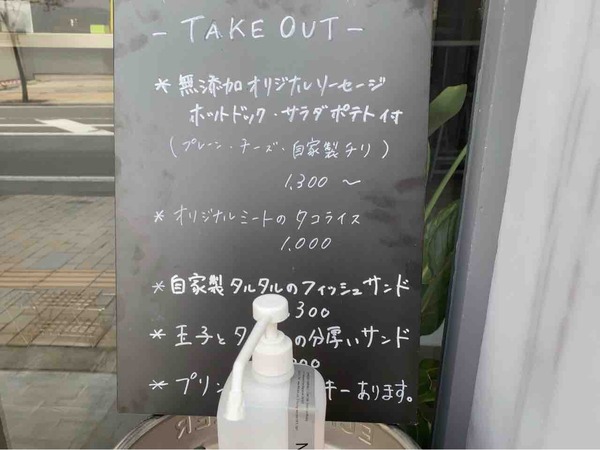 - TAKE OUT -
* 無添加オリジナルソーセージ
ホットドック・サラダポテト付
(プレーン・チーズ・自家製チリ)
1,300 〜
* オリジナルミートのタコライス
1,000
* 自家製タルタルのフィッシュサンド
300
* 玉子とタ の分厚いサンド
00
* プリン キーあります。